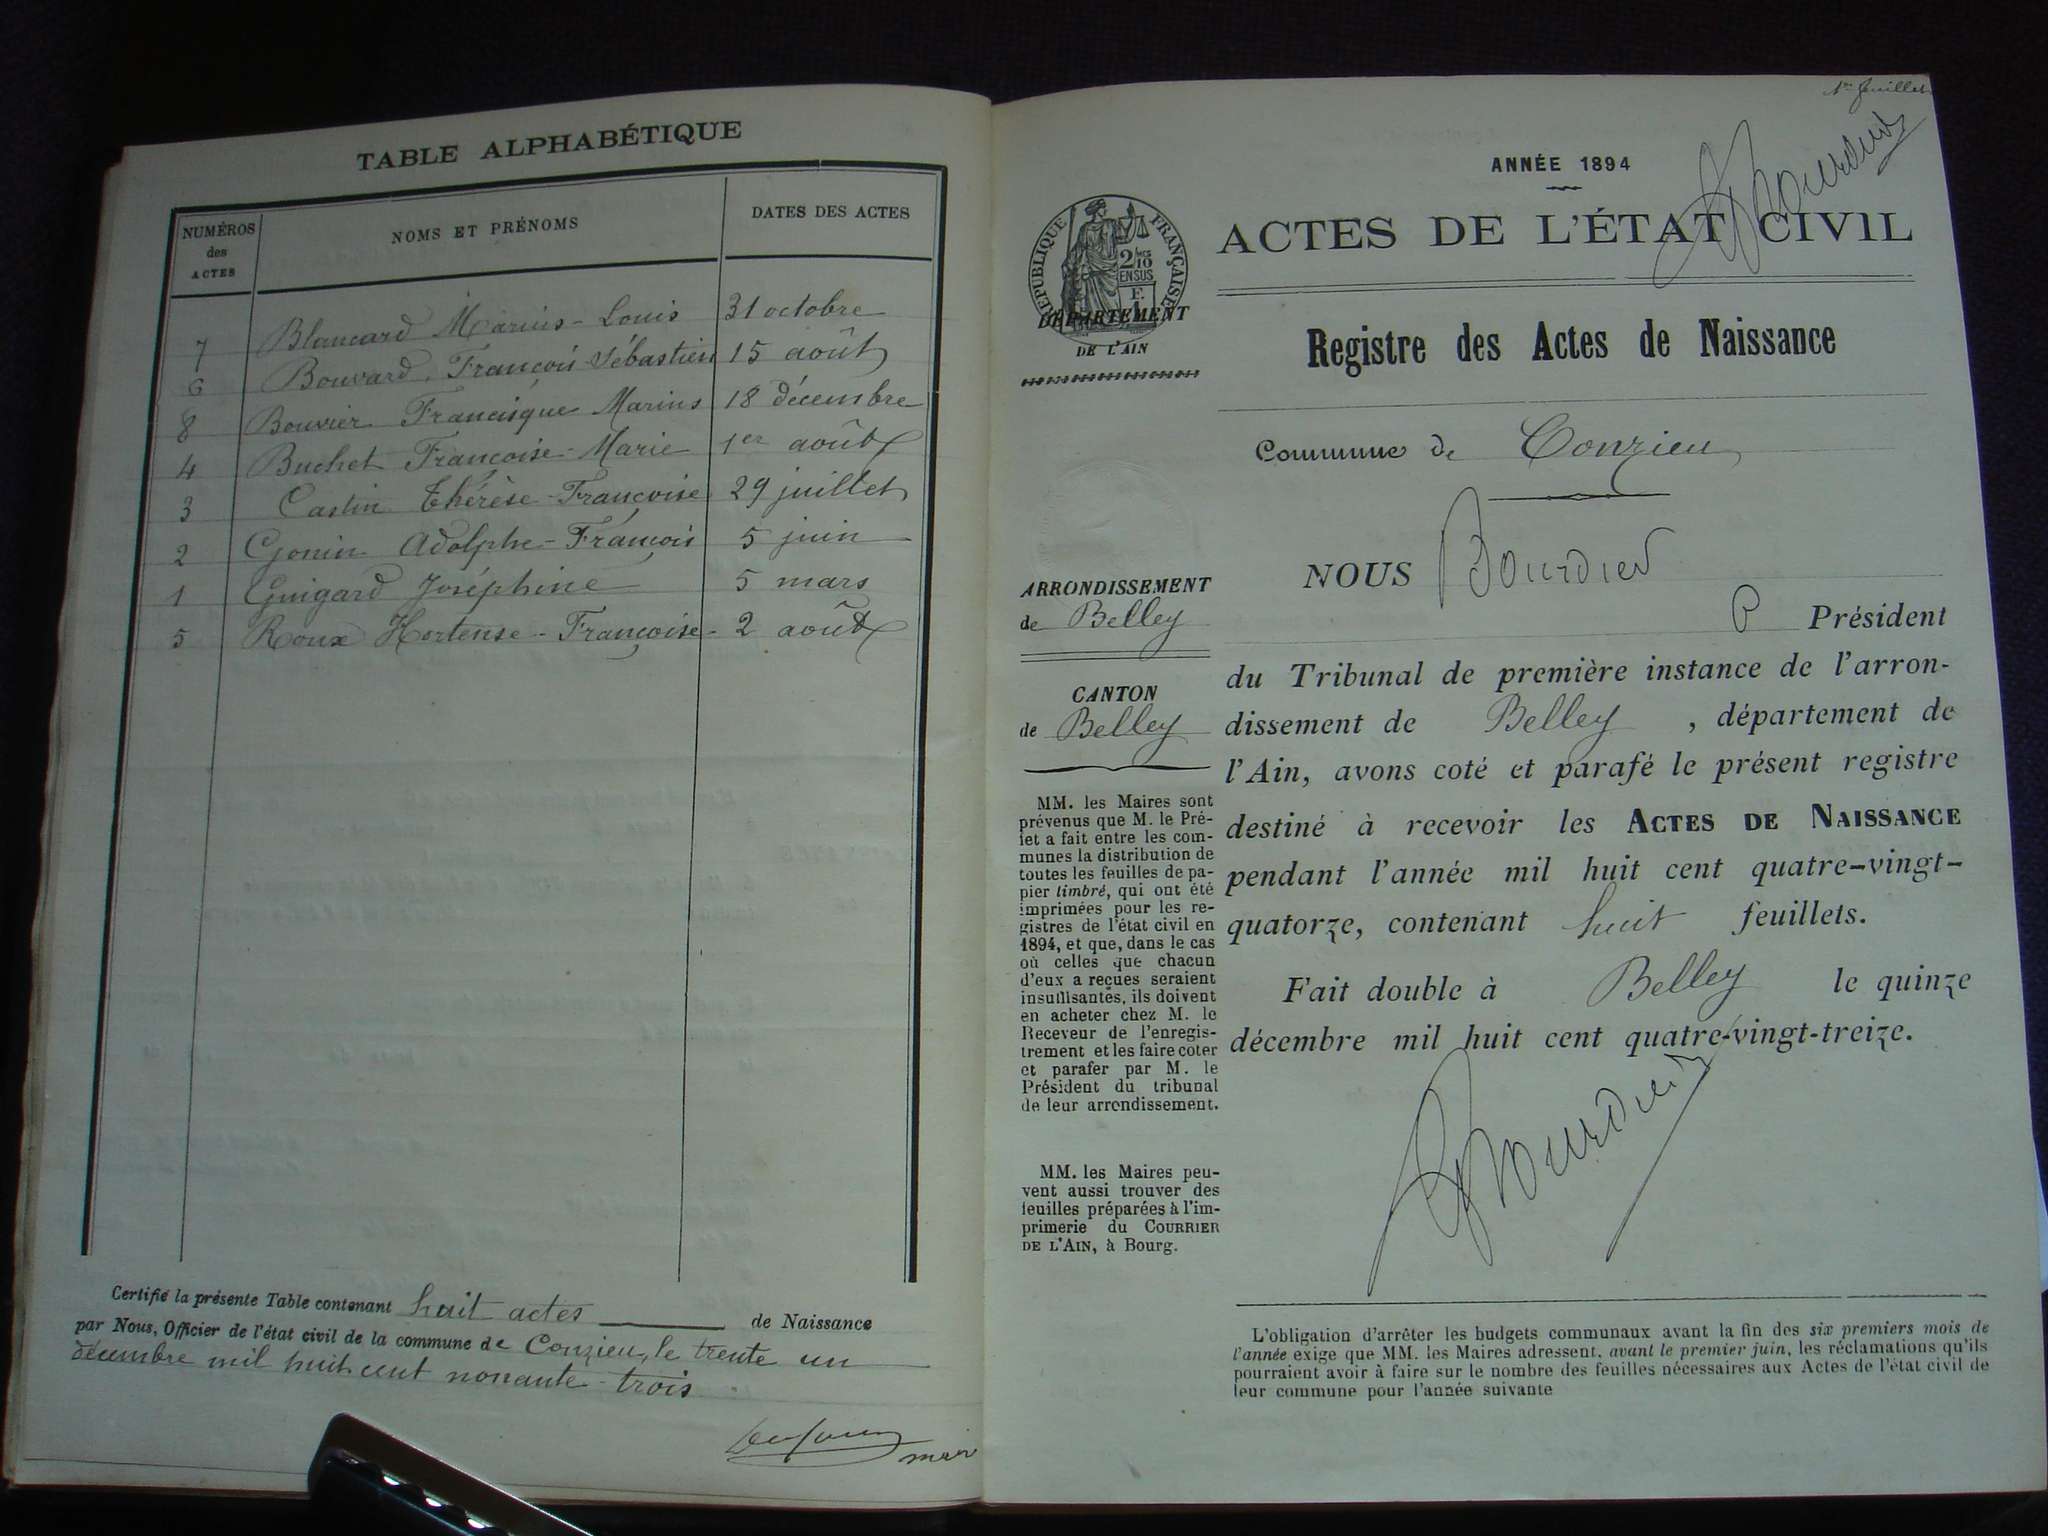 TABLE ALPHABÉTIQUE
NUMÉROS des ACTES NOMS ET PRÉNOMS DATES DES ACTES
7 Blancard Marius-Louis 31 octobre
6 Bouvard François Sébastien 15 août
8 Bouvier Francisque Marius 18 décembre
4 Buchet Françoise-Marie 1er août
3 Castin Thérèse-Françoise 29 juillet
2 Gonin Adolphe-François 5 juin
1 Guigard Joséphine 5 mars
5 Roux Hortense-Françoise 2 août
Certifié la présente Table contenant huit actes de Naissance
par Nous, Officier de l'état civil de la commune de Conzieu, le trente un
décembre mil huit cent nonante-trois
1er feuillet
ANNÉE 1894
ACTES DE L'ÉTAT CIVIL
RÉPUBLIQUE FRANÇAISE
DÉPARTEMENT
DE L'AIN
Registre des Actes de Naissance
Commune de Conzieu
NOUS Bourdier
P Président
ARRONDISSEMENT
de Belley
CANTON
de Belley
du Tribunal de première instance de l'arron-
dissement de Belley, département de
l'Ain, avons coté et parafé le présent registre
destiné à recevoir les ACTES DE NAISSANCE
pendant l'année mil huit cent quatre-vingt-
quatorze, contenant huit feuillets.
Fait double à Belley le quinze
décembre mil huit cent quatre-vingt-treize.
MM. les Maires sont
prévenus que M. le Pré-
fet a fait entre les com-
munes la distribution de
toutes les feuilles de pa-
pier timbré, qui ont été
imprimées pour les re-
gistres de l'état civil en
1894, et que, dans le cas
où celles que chacun
d'eux a reçues seraient
insuffisantes, ils doivent
en acheter chez M. le
Receveur de l'enregis-
trement et les faire coter
et parafer par M. le
Président du tribunal
de leur arrondissement.
MM. les Maires peu-
vent aussi trouver des
feuilles préparées à l'im-
primerie du COURRIER
DE L'AIN, à Bourg.
L'obligation d'arrêter les budgets communaux avant la fin des six premiers mois de
l'année exige que MM. les Maires adressent, avant le premier juin, les réclamations qu'ils
pourraient avoir à faire sur le nombre des feuilles nécessaires aux Actes de l'état civil de
leur commune pour l'année suivante